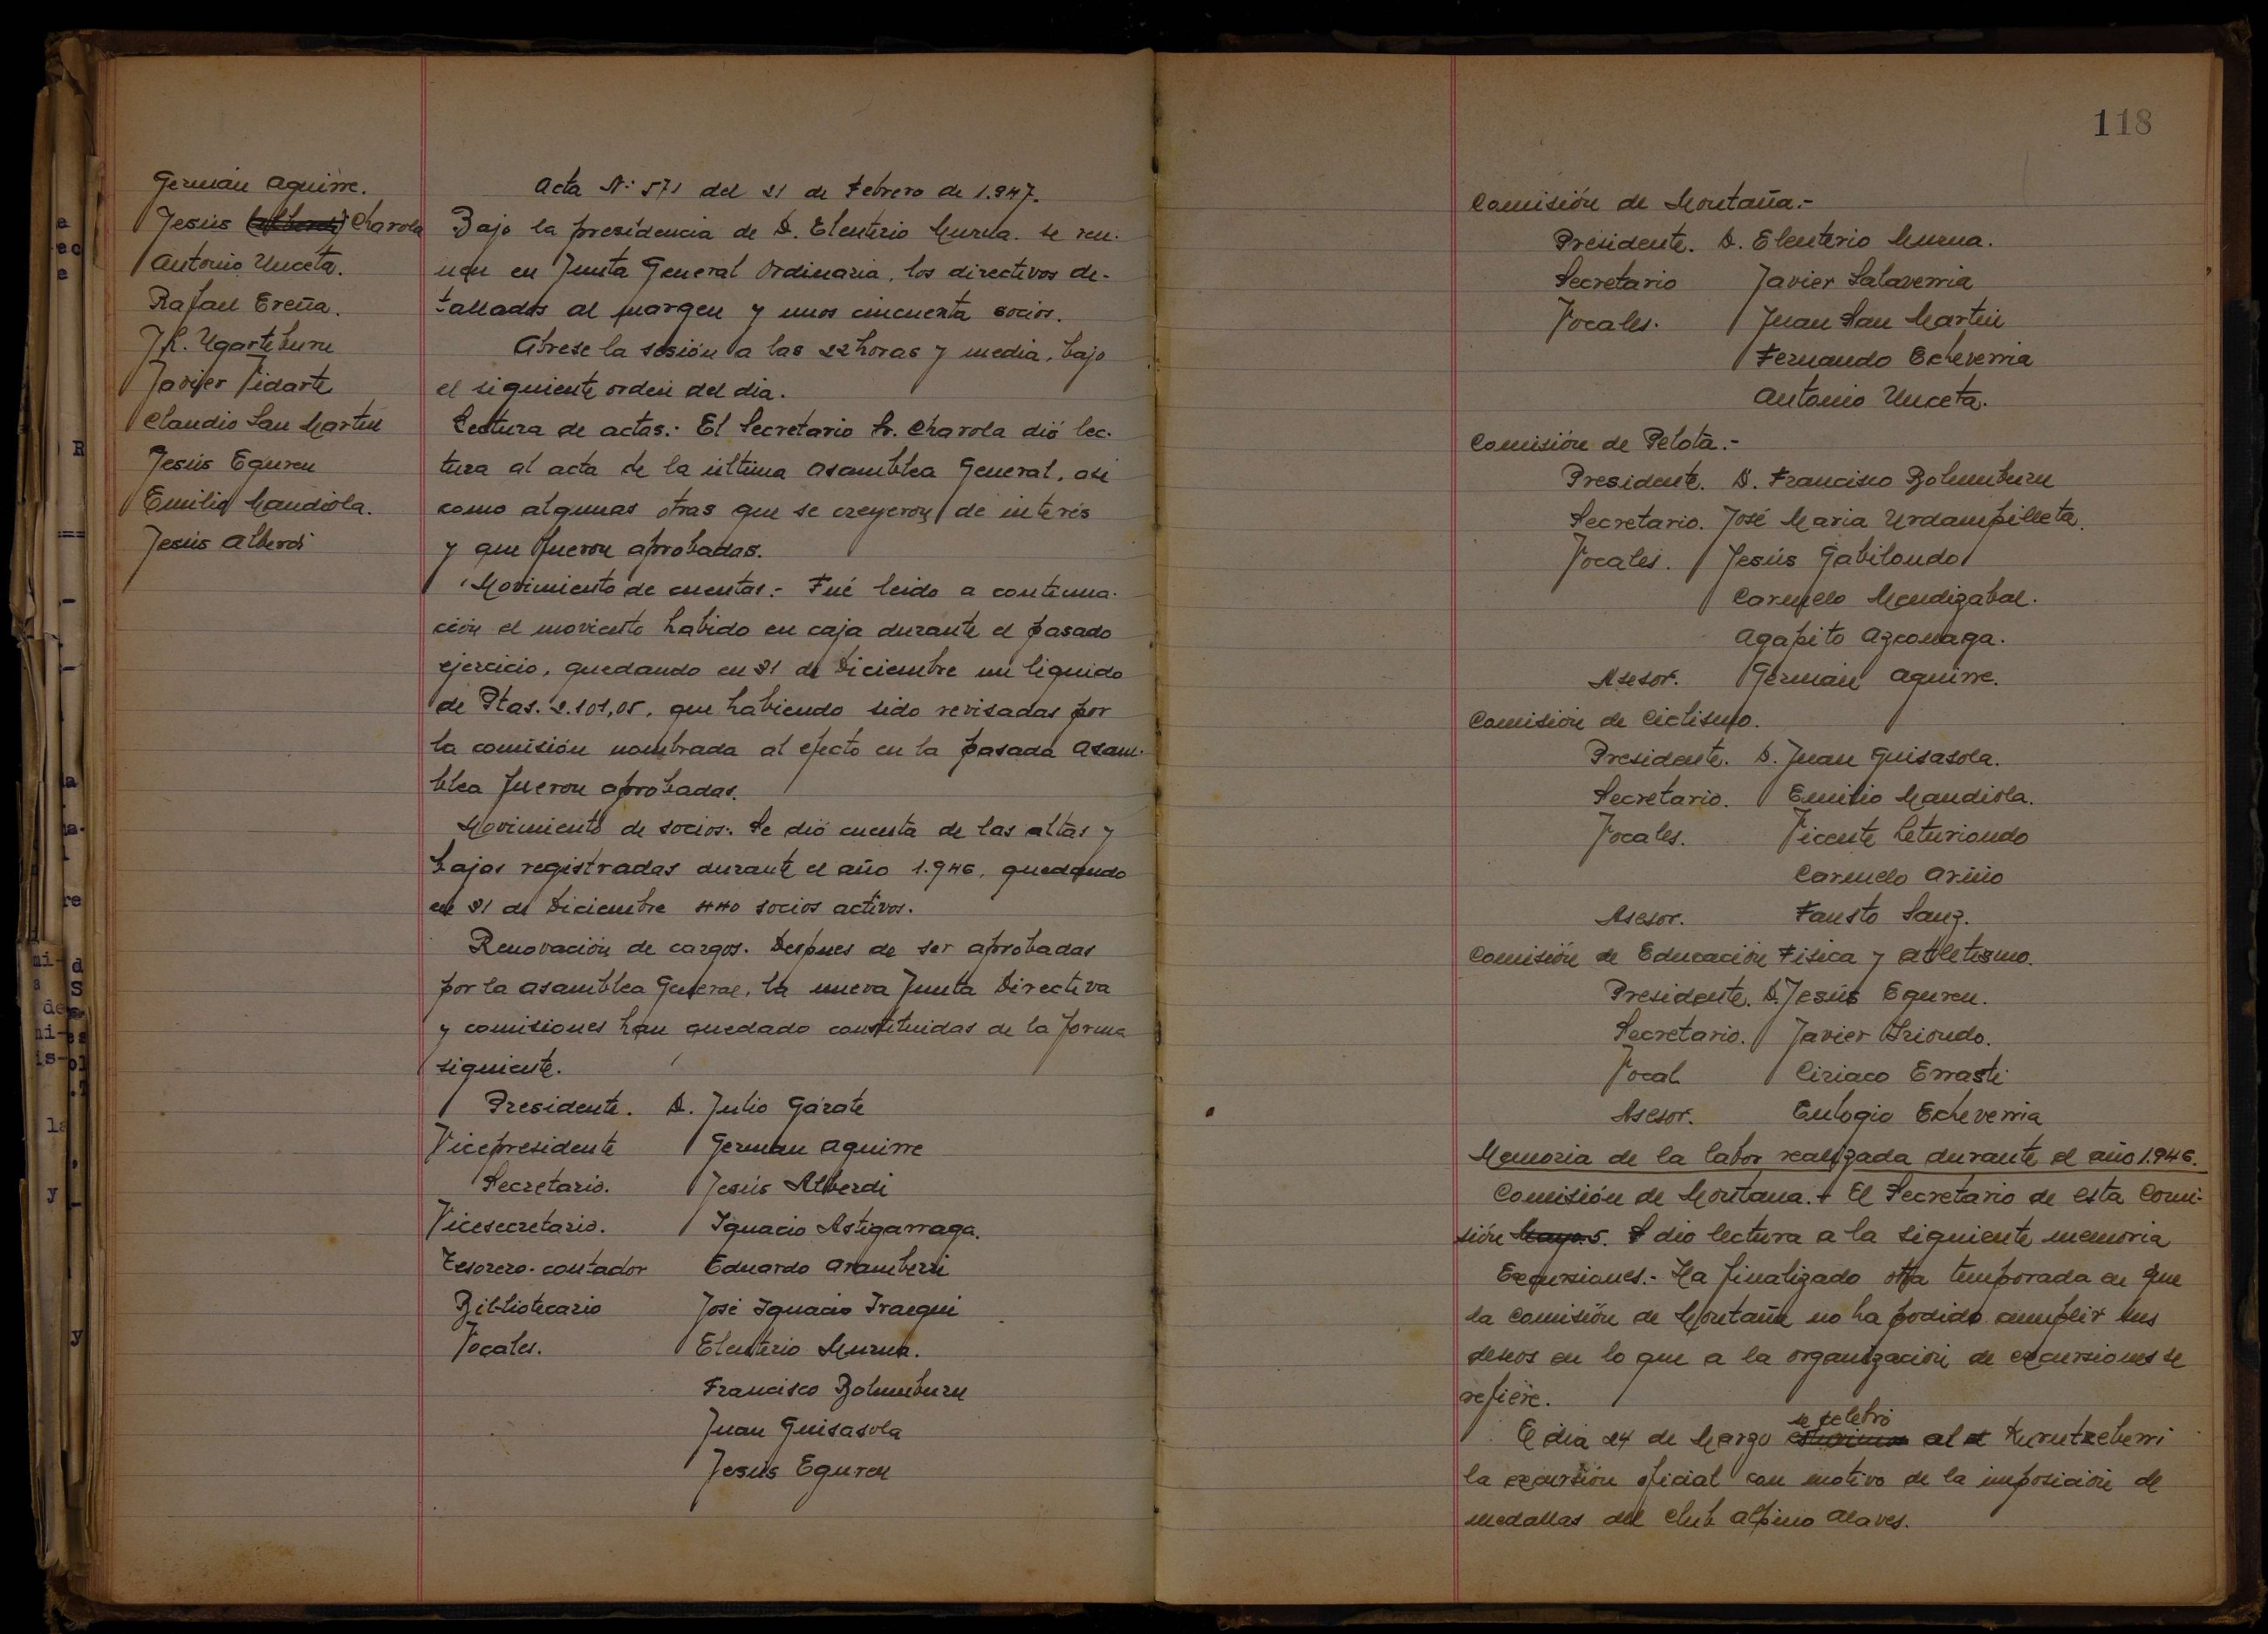 Germán Aguirre.
Jesús (Alberdi) Charola
Antonio Unceta.
Rafael Ereña.
J.L. Ugarteburu
Javier Tidarte
Claudio San Martin
Jesús Eguren
Emilio Mandiola.
Jesús Alberdi
Acta Nº 571 del 21 de Febrero de 1.947.
Bajo la presidencia de D. Eleuterio Murua. se reu-
nen en Junta General Ordinaria, los directivos de-
tallados al margen y unos cincuenta socios.
Abrese la sesión a las 22 horas y media, bajo
el siguiente orden del dia.
Lectura de actas.- El Secretario Sr. Charola dió lec-
tura al acta de la última Asamblea General, asi
como algunas otras que se creyeron de interés
y que fueron aprobadas.
Movimiento de cuentas.- Fué leido a continua-
ción el moviento habido en caja durante el pasado
ejercicio, quedando en 31 de Diciembre un liquido
de Ptas. 2.101,05, que habiendo sido revisadas por
la comisión nombrada al efecto en la pasada Asam-
blea fueron aprobadas.
Movimiento de socios.- Se dió cuenta de las altas y
bajas registradas durante el año 1.946, quedando
en 31 de Diciembre 440 socios activos.
Renovación de cargos. Despues de ser aprobadas
por la Asamblea General, la nueva Junta Directiva
y comisiones han quedado constituidas de la forma
siguiente.
Presidente. D. Julio Gárate
Vicepresidente German Aguirre
Secretario. Jesús Alberdi
Vicesecretario. Ignacio Astigarraga.
Tesorero-contador Eduardo Aramberri
Bibliotecario José Ignacio Iraegui
Vocales. Eleuterio Murua.
Francisco Bolumburu
Juan Guisasola
Jesús Eguren
118
Comisión de Montaña.-
Presidente. D. Eleuterio Murua.
Secretario Javier Salaverria
Vocales. Juan San Martin
Fernando Echeverria
Antonio Unceta.
Comisión de Pelota.-
Presidente. D. Francisco Bolumburu
Secretario. José Maria Urdampilleta.
Vocales. Jesús Gabilondo
Carmelo Mendizabal.
Agapito Azconaga.
Asesor. Germán Aguirre.
Comisión de Ciclismo.
Presidente. D. Juan Guisasola.
Secretario. Emilio Mandiola.
Vocales. Vicente Leturiondo
Carmelo Ariño
Asesor. Fausto Sanz.
Comisión de Educación Fisica y Atletismo.
Presidente. D. Jesús Eguren.
Secretario. Javier Oriondo.
Vocal Ciriaco Errasti
Asesor. Eulogio Echeverria
Memoria de la labor realizada durante el año 1.946.
Comisión de Montana.- El Secretario de esta Comi-
sión dio lectura a la siguiente memoria
Excursiones.- Ha finalizado otra temporada en que
la Comisión de Montaña no ha podido cumplir sus
deseos en lo que a la organización de excursiones se
refiere.
se celebró
E dia 24 de Marzo estuvimos al Kurutzeberri
la excursión oficial con motivo de la imposición de
medallas del Club Alpino Alaves.